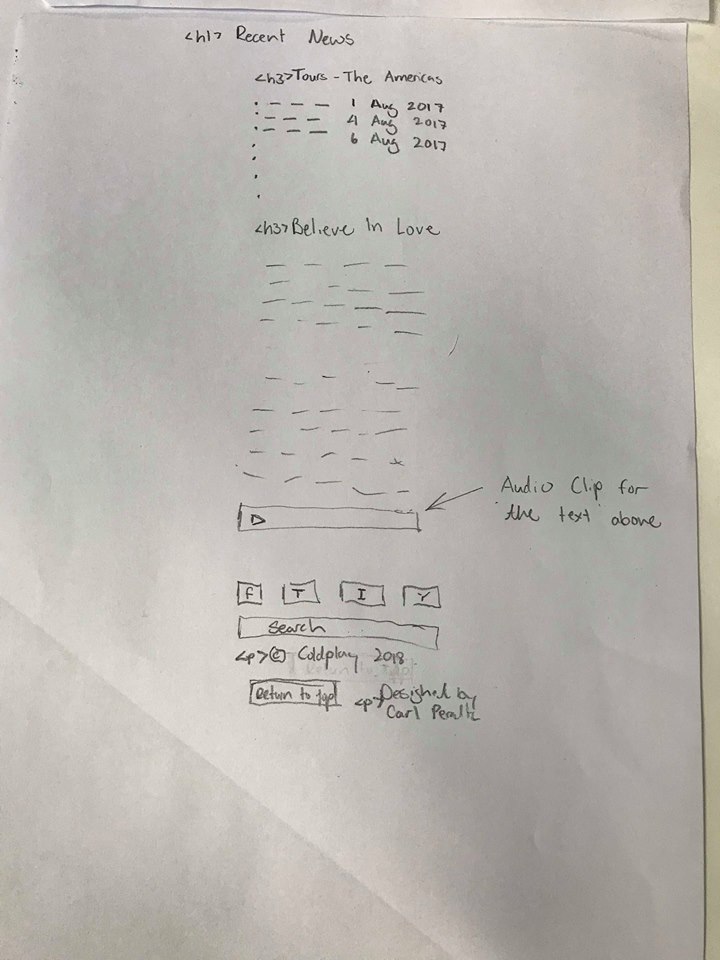 <h1> Recent News
<h3>Tours - The Americas
1 Aug 2017
4 Aug 2017
6 Aug 2017
<h3>Believe In Love
Audio Clip for
the text above
F T I Y
Search
<p>© Coldplay 2018
Return to top
<p>Designed by
Carl